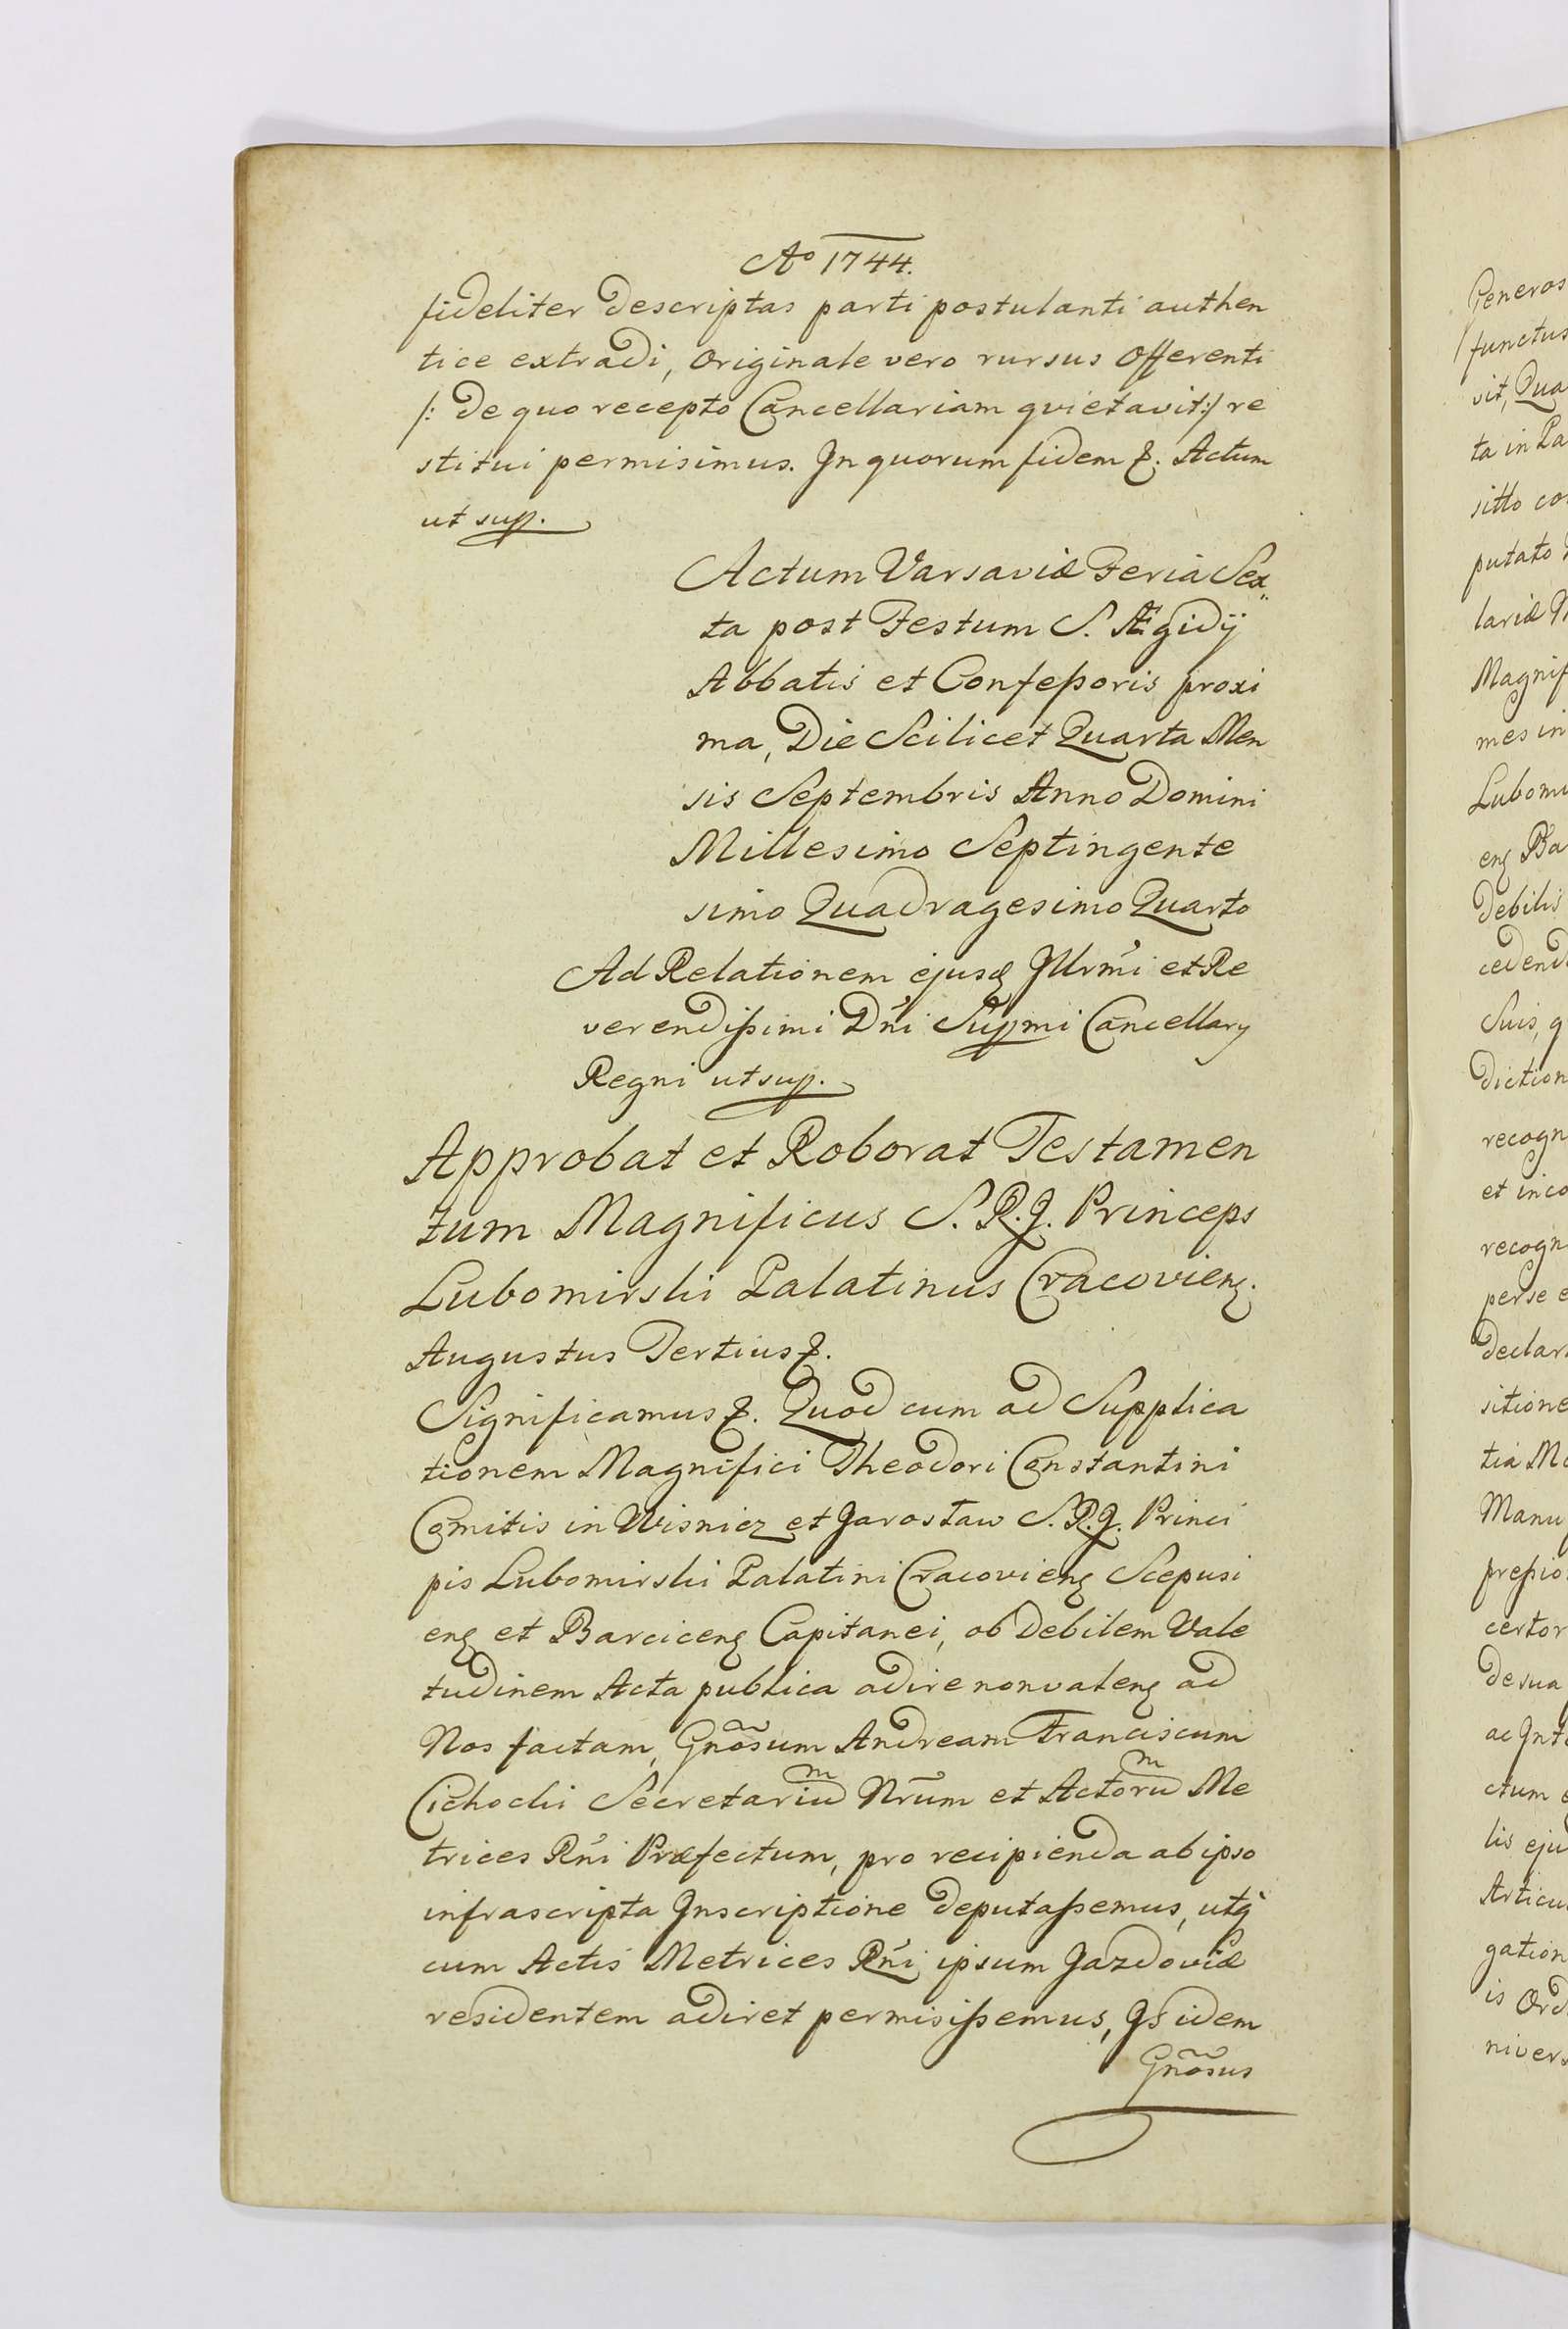 Aº 1744.
fideliter descriptas parti postulanti authen
tice extradi, originale vero rursus offerenti
/: de quo recepto Cancellariam qvietavit :/ re
stitui permisimus. Jn quorum fidem &. Actum
ut sup.
Actum Varsaviæ Feria Sex„
ta post Festum S. Ægidÿ
Abbatis et Confeßoris proxi
ma, Die Scilicet Quarta Men
sis Septembris Anno Domini
Millesimo Septingente
simo Quadragesimo Quarto
Ad Relationem ejusd Jllrm̃i et Re
verendißimi Dñi Suppmi Cancellary
Regni ut sup.
Approbat et Roborat Testamen
tum Magnificus S. R. J. Princeps
Lubomirski Palatinus Cracovien̨.
Augustus Tertius &.
Significamus &. Quod cum ad Supplica
tionem Magnifici Theodori Constantini
Comitis in Wisnicz et Jarosław S. R. J. Princi
pis Lubomirski Palatini Cracovien̨ Scepusi
en̨ et Barcicen̨ Capitanei, ob debilem Vale
tudinem Acta publica adire non valen̨ ad
Nos factam, Gnõsum Andream Franciscum
Cichocki Secretariũm Nr̃um et Actorũm Me
trices Rñi Præfectum, pro recipienda ab ipso
infrascripta Jnscriptione deputaßemus, utq̃
cum Actis Metrices Rñi ipsum Jazdoviæ
residentem adiret permisißemus, Qs idem
Gnõsus
Generos
functus
vit, Qua
ta in Pa
sitto co
putato
lariæ
Magnif
mes in
Lubomi
en̨ Ba
debilis
cedend
Suis, q
diction
recogn
et inco
recogn
per se e
declar
sitione
tia M
Manu
preßio
certor
de sua
ac Jnt
ctum
lis eju
Articu
gation
is Ord
nivers